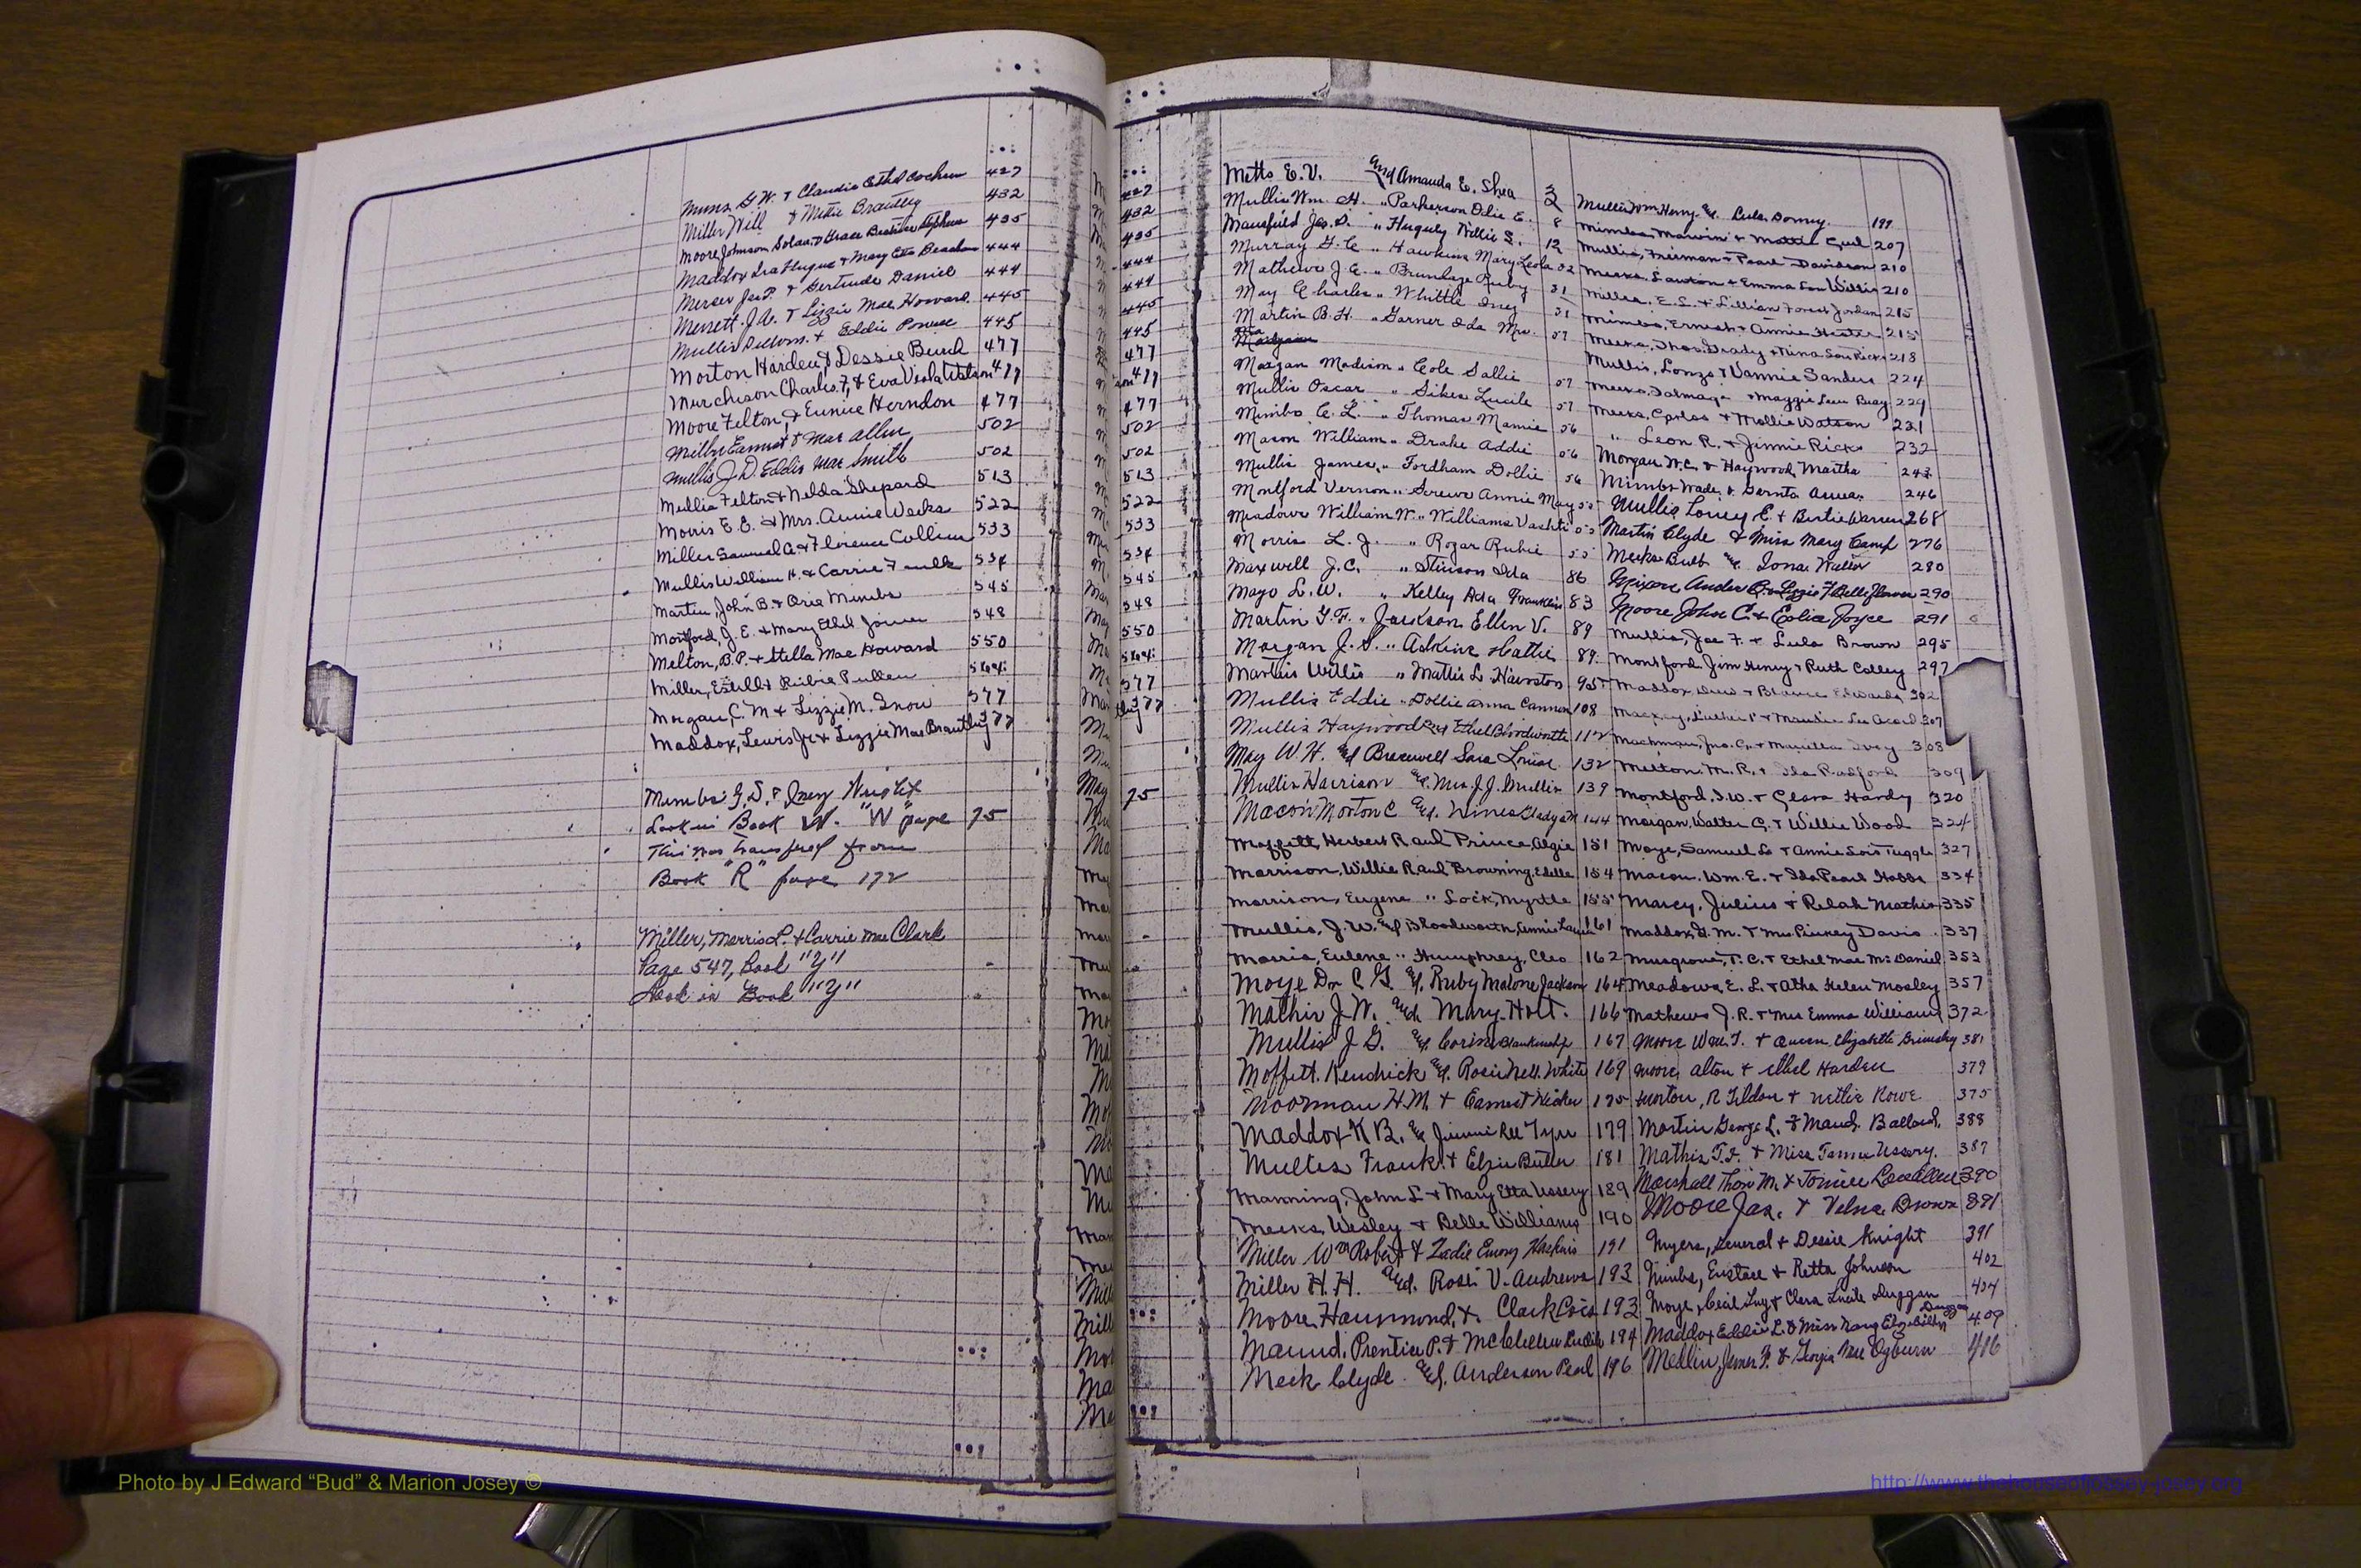 Mims G.W. & Claudia Ethel Cochran 427
Miller Will & Mittie Brantley 432
Moore Johnson Solan & Grace Beatrice Stephens 435
Maddox Ira Hugue & Mary Etta Beacham 444
Mercer Jas P. & Gertrude Daniel 444
Merritt. J.A. & Lizzie Mae Howard. 445
Mullis & Eddie 445
Morton Harden & Dessie Burch 477
Murchison Charles F. & Eva Viola Watson 477
Moore Felton, & Eunice Herndon 477
Miller Earnest & Mae Allen 502
Mullis J.D. Eddie Mae Smith 502
Mullis Felton & Nelda Shepard 513
Morris E.E. & Mrs. Annie Weeks 522
Miller Samuel A. & Florence Collins 533
Mullis William H. & Carrie Faulk 534
Martin, John B. & Orie Mimbs 545
Montford, J. E. & Mary Ethel Joiner 548
Melton, B.P. & Stella Mae Howard 550
Miller, Estell & Rubie Pullen 564
Morgan, C. M & Lizzie M. Snow 577
Maddox, Lewis Jr & Lizzie Mae Brantley 577
Mimbs G.D. & Inez Wright
Look in Book W. "W" page 75
This was transfered from
Book "R" page 172
Miller, Morris L. & Carrie Mae Clark
Page 547, Book "Y"
Look in Book "Y"
Metts E.V. and Amanda E. Shea 3
Mullis Wm. H. " Parkerson Odie E. 8
Mansfield Jas. S. " Huguly Willie S. 12
Murray G.C " Hawkins Mary Leola 32
Mathews J.E. " Brundage Ruby 31
May Charles " Whittle Inez 31
Martin B.H. " Garner Ida Mrs. 57
Morgan Madison " Cole Sallie 57
Mullis Oscar " Sikes Lucile 57
Mimbs C. L. " Thomas Mamie 56
Mason William " Drake Addie 56
Mullis James, " Fordham Dollie 56
Montford Vernon " Screws Annie May 55
Meadows William W. " Williams Vashti 55
Morris L. J. " Rozar Rubie 55
Maxwell J.C. " Stinson Ida 86
Mayo L.W. " Kelley Ada Franklin 83
Martin G.F. " Jackson Ellen V. 89
Morgan J.S. " Adkins Hattie 89
Martin Willis " Mattie L Hairston 95
Mullis Eddie " Dollie Anna Cannon 108
Mullis Haywood and Ethel Bloodworth 112
May W.H. and Bracewell Sara Louise 132
Mullis Harrison and Mrs J.J. Mullis 139
Macon Morton C and Gladys 144
Moffett, Herbert R and Prince, Algie 151
Morrison, Willie R and Browning, Edelle 154
Morrison, Eugene " Lock, Myrtle 155
Mullis, J.W. and Bloodworth, Annie Laurie 161
Morris, Eulene " Humphrey, Cleo 162
Moye Dr. C.G. and Ruby Malone Jackson 164
Mathis J.W. and Mary Holt. 166
Mullis J G. and Corine Blankinship 167
Moffett. Kendrick and Rosie Nell. White 169
Moorman H.M. & Earnest Wicker 175
Maddox K B. and Jimmie Nell Tyre 179
Mullis Frank & Elzie Butler 181
Manning, John L & Mary Etta Ussery 189
Meeks, Wesley & Belle Williams 190
Miller Wm Robert & Zadie Emory Haskins 191
Miller H.H. and Rosi V. Andrews 193
Moore, Hammond, & Clark Lois 193
Maund, Prentice P. & McClellen Lucile 194
Meek Clyde and Anderson Pearl 196
Mullis Wm Henry and Lula Dorsey. 199
Mimbs, Marvin & Mattie 207
Mullis, Freeman & Pearl Davidson 210
Meeks, Lawton & Emma Lou Willis 210
Miller, E.L. & Lillian Forest Jordan 215
Mimbs, Ernest & Annie Hester 215
Meeks, Thos. Grady & Nina Lou Ricks 218
Mullis, Lonzo & Vannie Sanders 224
Meeks, Talmage & Maggie Lou Bray 229
Meeks, Carlos & Mollie Watson 231
" Leon R. & Jinnie Ricks 232
Morgan W.C. & Haywood Martha 243
Mimbs Wade & 246
Mullis Loney E. & Birtie Warren 268
Martin Clyde & Miss Mary Camp 276
Meeks Bulb and Iona Waller 280
Mixon Ander B. & Lizzie F Belleflower 290
Moore John C & Eolia Joyce 291
Mullis, Joe F. & Lula Brown 295
Montford Jim Henry & Ruth Colley 297
Maddox & Blanche Edwards 302
Mackey, Luther P & Maudie Lee 307
Machman, Jno. C. & Marilla Ivey 308
Melton. M.R. & Ida Radford 309
Montford, I.W. & Clara Hardy 320
Morgan, Walter G. & Willie Wood 324
Moye, Samuel L & Annie Lois Tuggle 327
Macon. Wm. E. & Ida Pearl Hobbs 334
Marcy, Julius & Relah Mathis 335
Maddox, G. M. & Mrs Pinkey Davis 337
Musgrove, T.C. & Ethel Mae McDaniel 353
Meadows, E. L. & Atha Helen Mosley 357
Mathews J.R. & Mrs Emma Williams 372
Moore Wm. T. & Queen Elizabeth Grimsley 381
Moore, Alton & Ethel Harden 379
Morton, R Tildon & Nettie Rowe 375
Martin George L. & Maud Ballard. 388
Mathis T.F. & Miss Fannie Ussery. 387
Marshall Thos M. & 390
Moore Jas. & Velna Brown 391
Myers, General & Dessie Knight 391
Mimbs, Eustace & Retta Johnson 402
Moye, Cecil Guy & Clara Lucile Duggan 404
Maddox Eddie L. & Miss Mary Elizabeth Duggan 409
Medlin, James F. & Georgia Mae Ogburn 416
Photo by J Edward “Bud” & Marion Josey ©
http://www.thehouseofjossey-josey.org